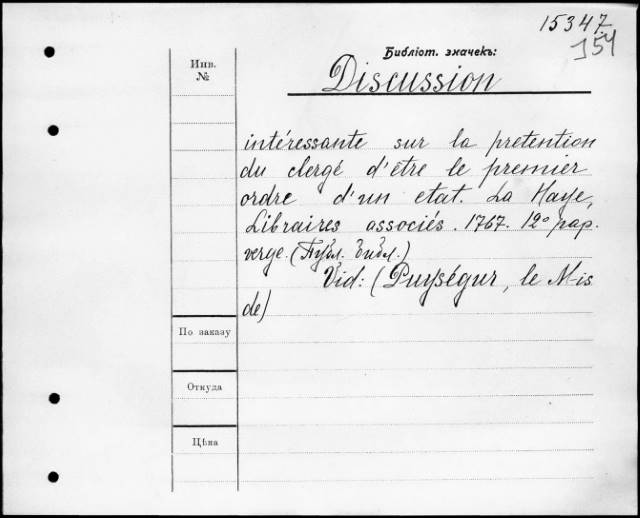 15347
154
Библіот. значекъ:
Инв.
№
Discussion
intéressante sur la pretention
du clergé d'être le premier
ordre d'un etat. La Haye,
Libraires associés. 1767. 12° pap.
verge. (Публ. Библ.)
Vid: (Puységur, le M-is
de)
По заказу
Откуда
Цѣна